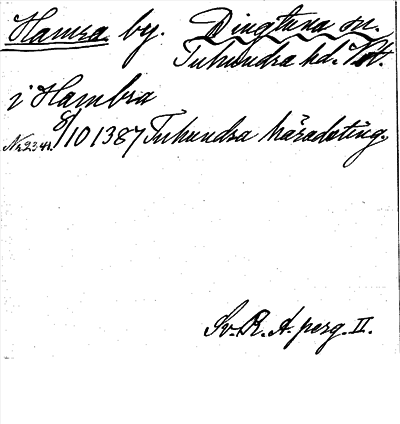 Hamra by. Dingtuna sn.
Tuhundra hd. Vstm.
i Hambra
Nr 2341. 8/10 1387 Tuhundra häradsting.
Sv. R. A. perg. II.